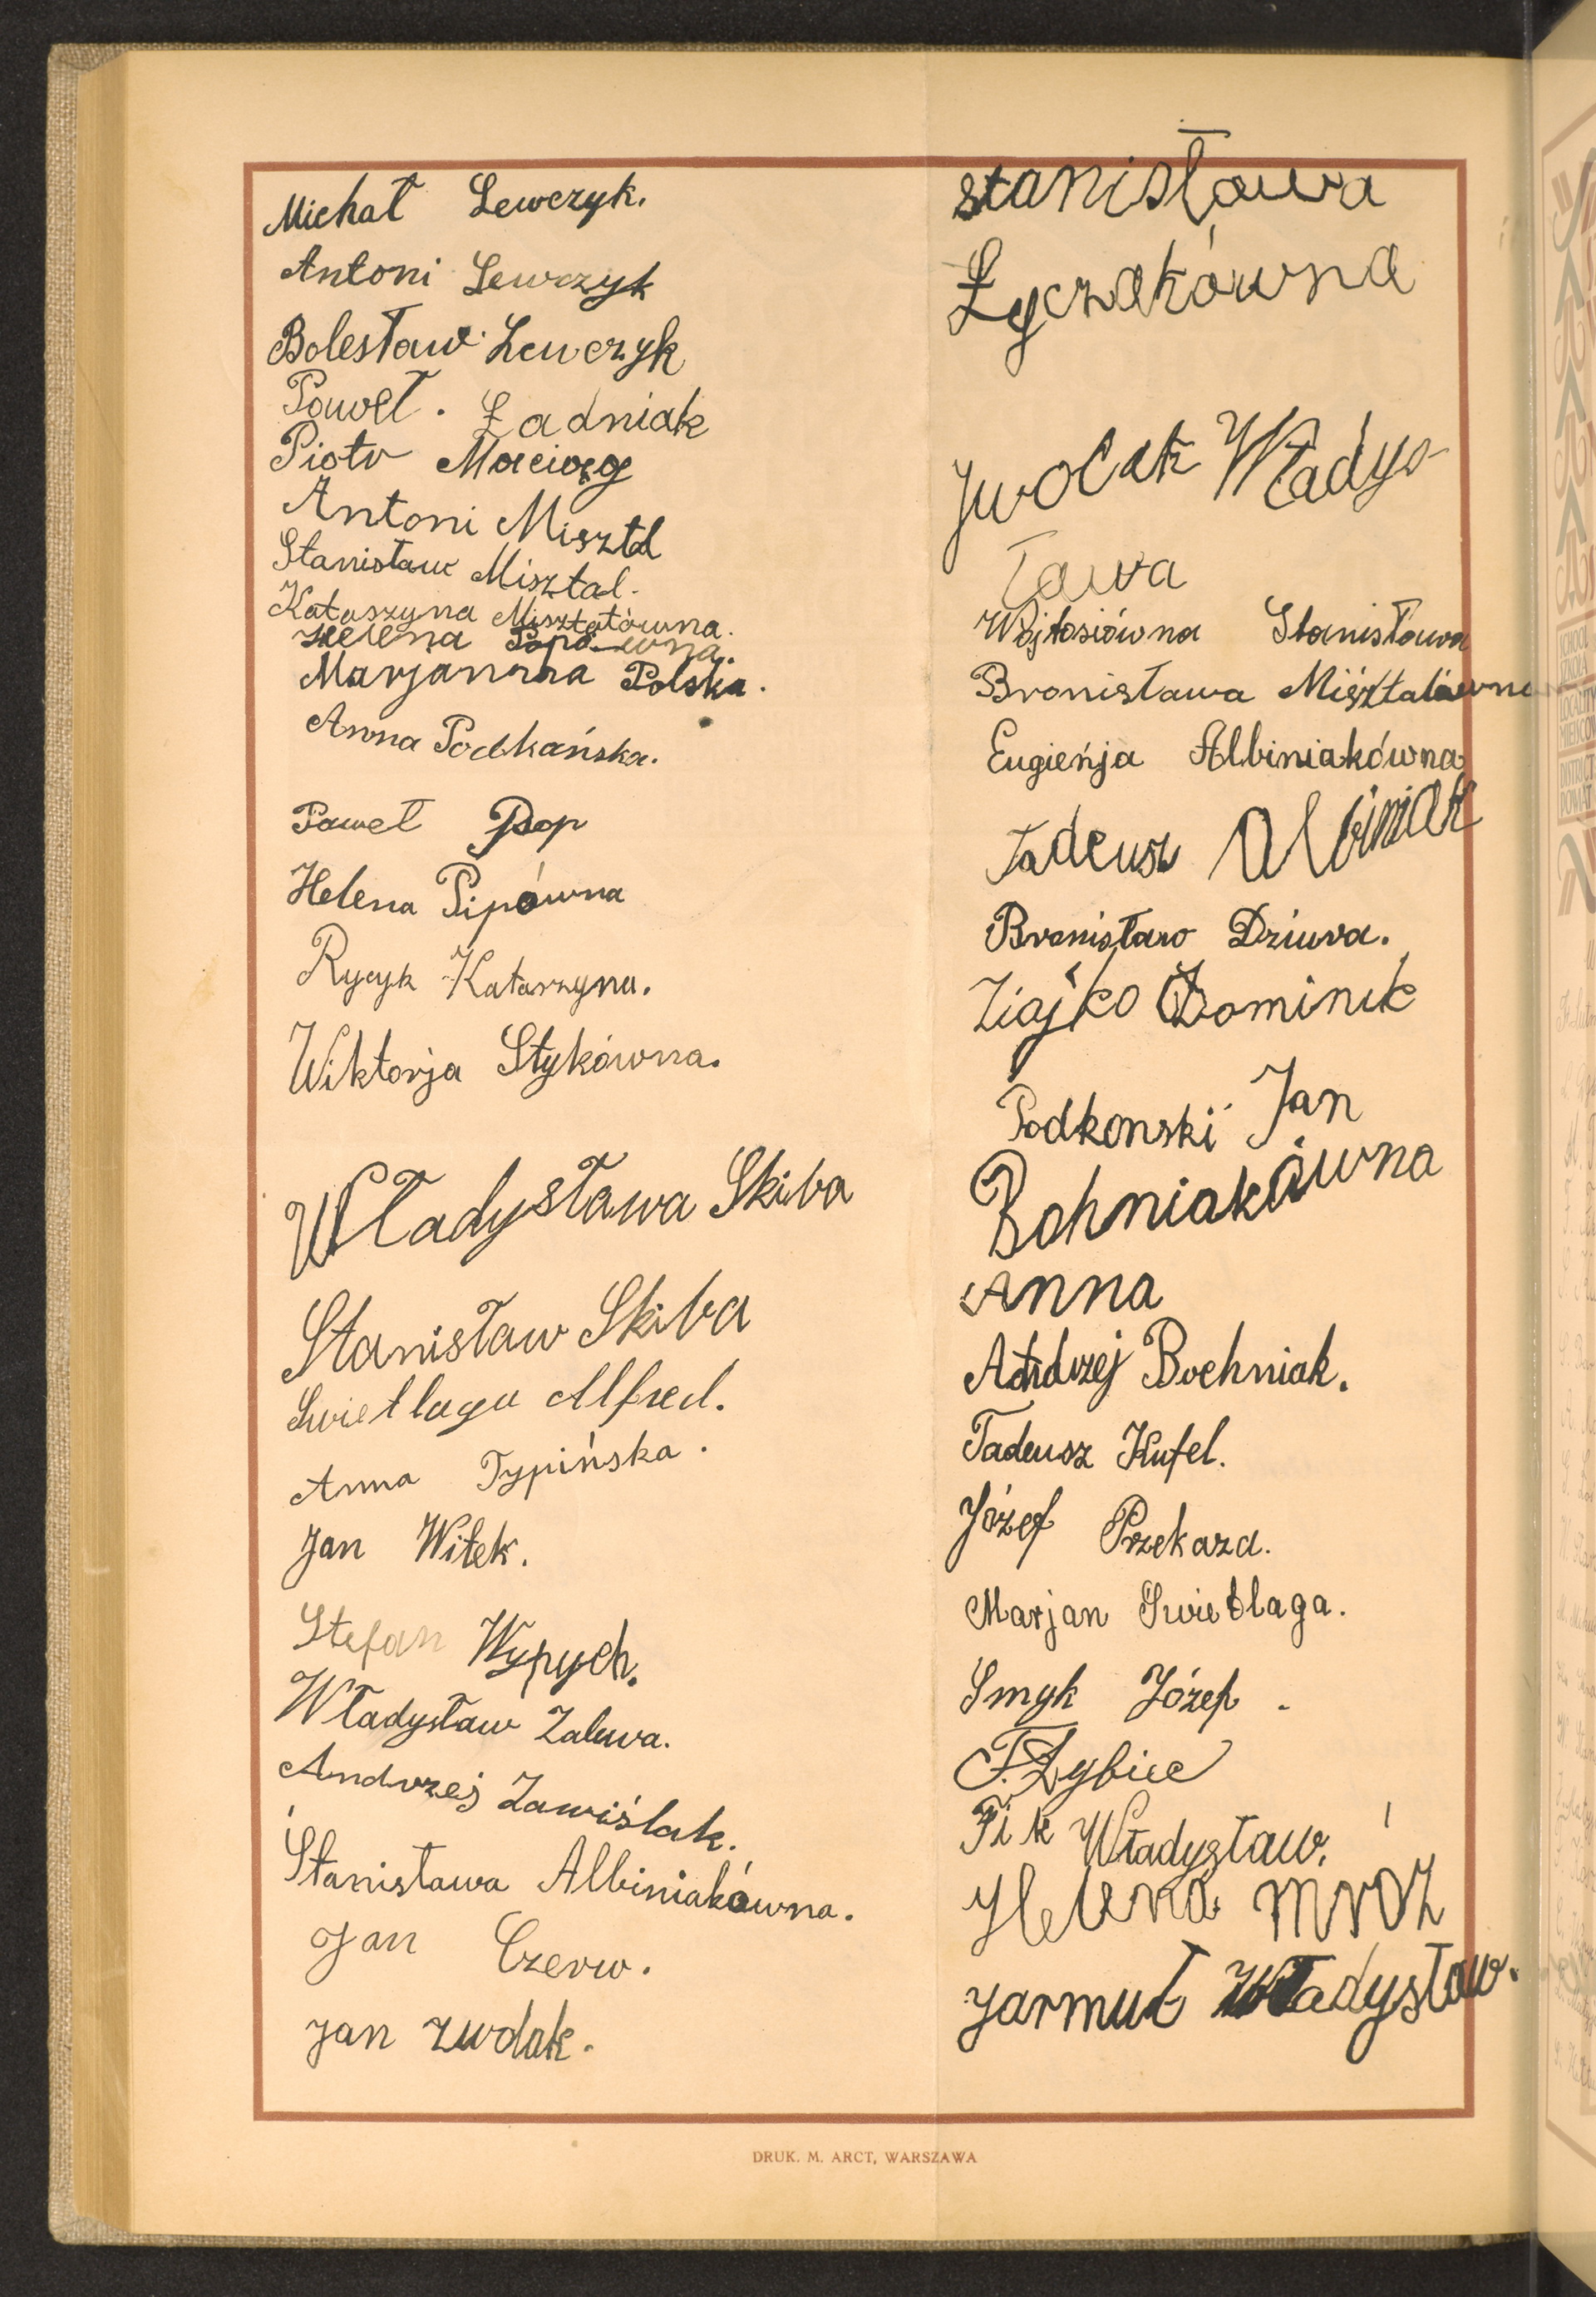 Michał Lewczyk.
Antoni Lewczyk
Bolesław Lewczyk
Paweł. Ładniak
Piotr Maciąg
Antoni Misztal
Stanisław Misztal.
Kataszyna Misztalówna.
Helena Popówna.
Marjanna Polska.
Anna Podkańska.
Paweł Pop
Helena Pipówna
Rycyk Katarzyna.
Wiktorja Stykówna.
Władysława Skiba
Stanisław Skiba
Swietlaga Alfred.
Anna Typińska.
Jan Witek.
Stefan Wypych.
Władysław Zaluwa.
Andrzej Zawiślak.
Stanisława Albiniakówna.
Jan Czerw.
Jan Zwolak.
Stanisława
Łyczakówna
Jwocak Władys-
ława
Wójtosiówna Stanisława
Bronisława Misztalówna
Eugieńja Albiniakówna
Tadeusz Albiniak
Bronisław Dziuva.
Ziajko Dominik
Podkonski Jan
Bohniakówna
Anna
Andrzej Bochniak.
Tadeusz Kufel.
Józef Przekaza.
Marjan Swietlaga.
Smyk Józef.
F. Zybice
Fik Władysław.
Helena Mróz
Jarmuł Władysław.
DRUK. M. ARCT, WARSZAWA